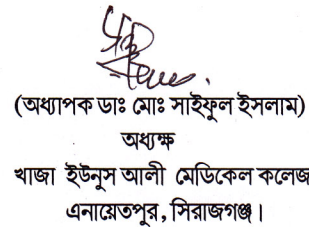 (অধ্যাপক ডাঃ মোঃ সাইফুল ইসলাম)
অধ্যক্ষ
খাজা ইউনুস আলী মেডিকেল কলেজ
এনায়েতপুর, সিরাজগঞ্জ।